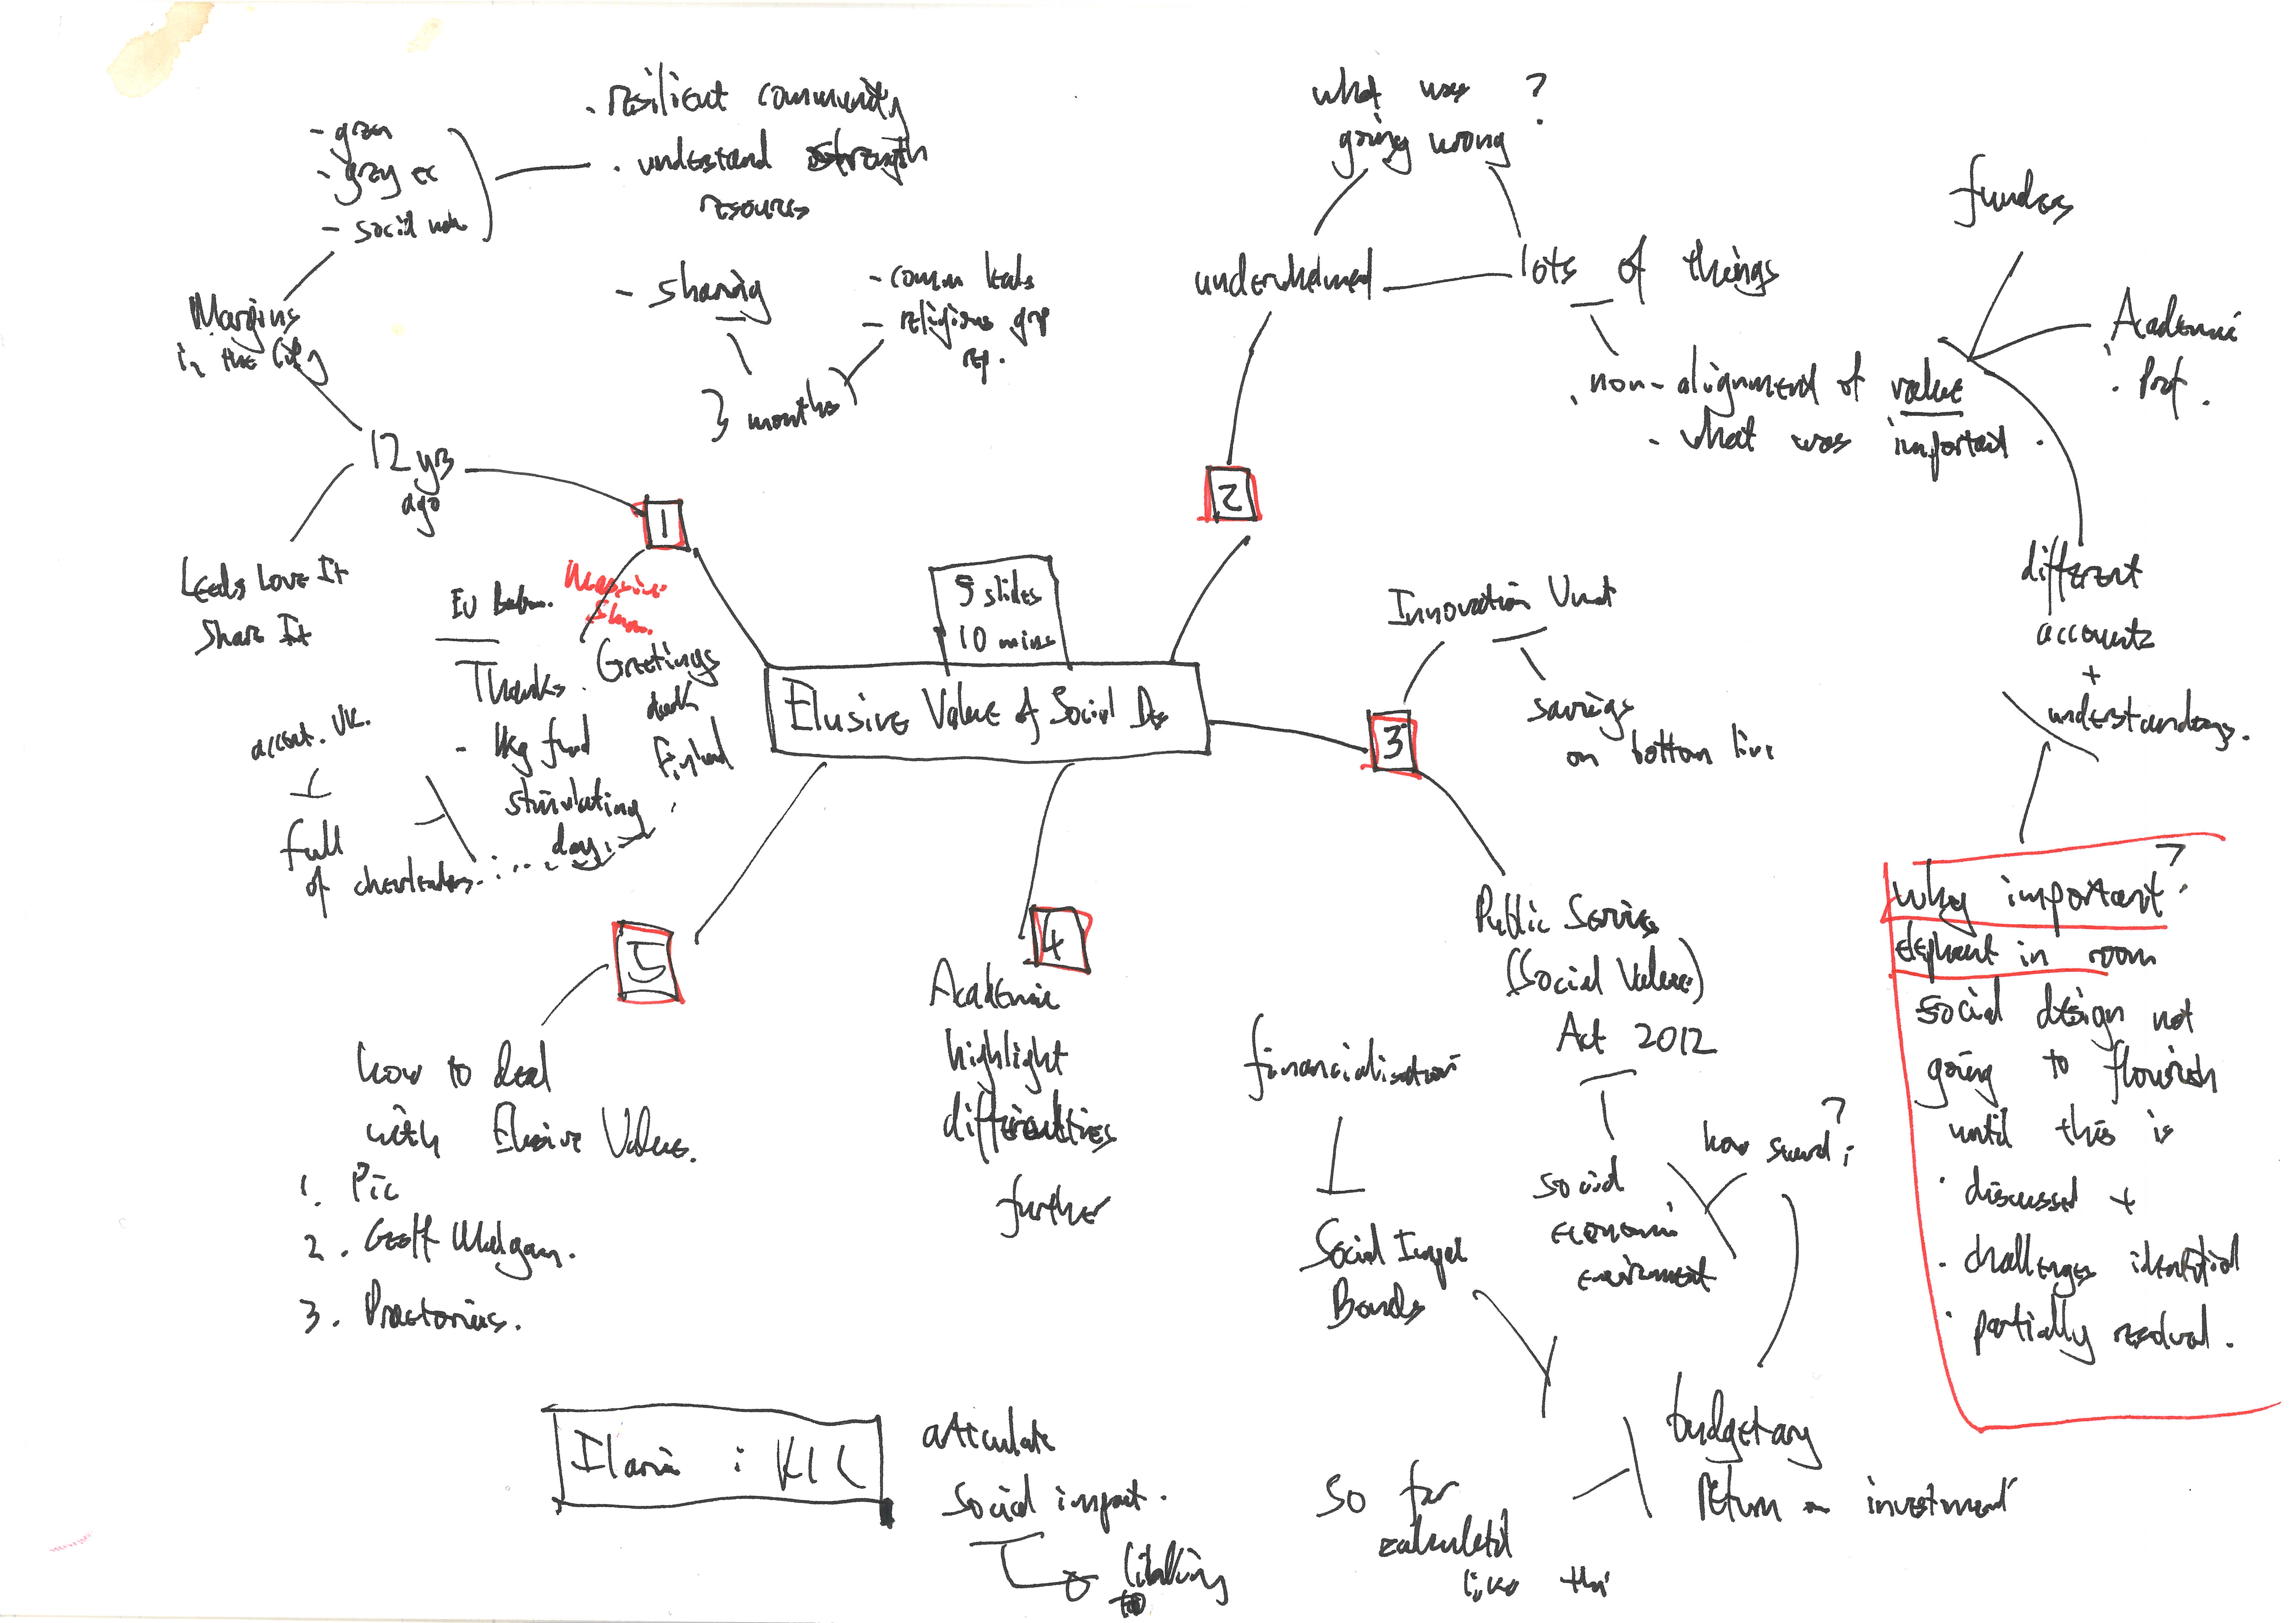 - gren
- grey ec
- social
. resilient community
. understand strength
resources
Margins
in the City
12 yrs
ago
Leeds Love It
Share It
- sharing
3 months
- comm leads
- religious grp
rep.
1
EU
Thanks . Greetings
- Hkg fund
stimulating
day
accent. UK.
full
of cheerleaders.
5 slides
10 mins
Elusive Value of Social Des
2
what was ?
going wrong
underwhelmed
lots of things
. non-alignment of value
- what was important .
funders
Academic
. Prof .
different
accounts
+
understandings.
why important?
elephant in room
social design not
going to flourish
until this is
. discussed +
. challenges identified
. partially resolved.
3
Innovation Unit
savings
on bottom line
Public Services
(Social Value)
Act 2012
social
economic
environment
how saved?
financialisation
Social Impact
Bonds
budgetary
return on investment
so far
calculated
like this
4
Academic
highlight
difficulties
further
5
how to deal
with Elusive Values.
1. Pic
2. Geoff Mulgan.
3. Praetorius.
Ilaria : KIC
articulate
social impact.